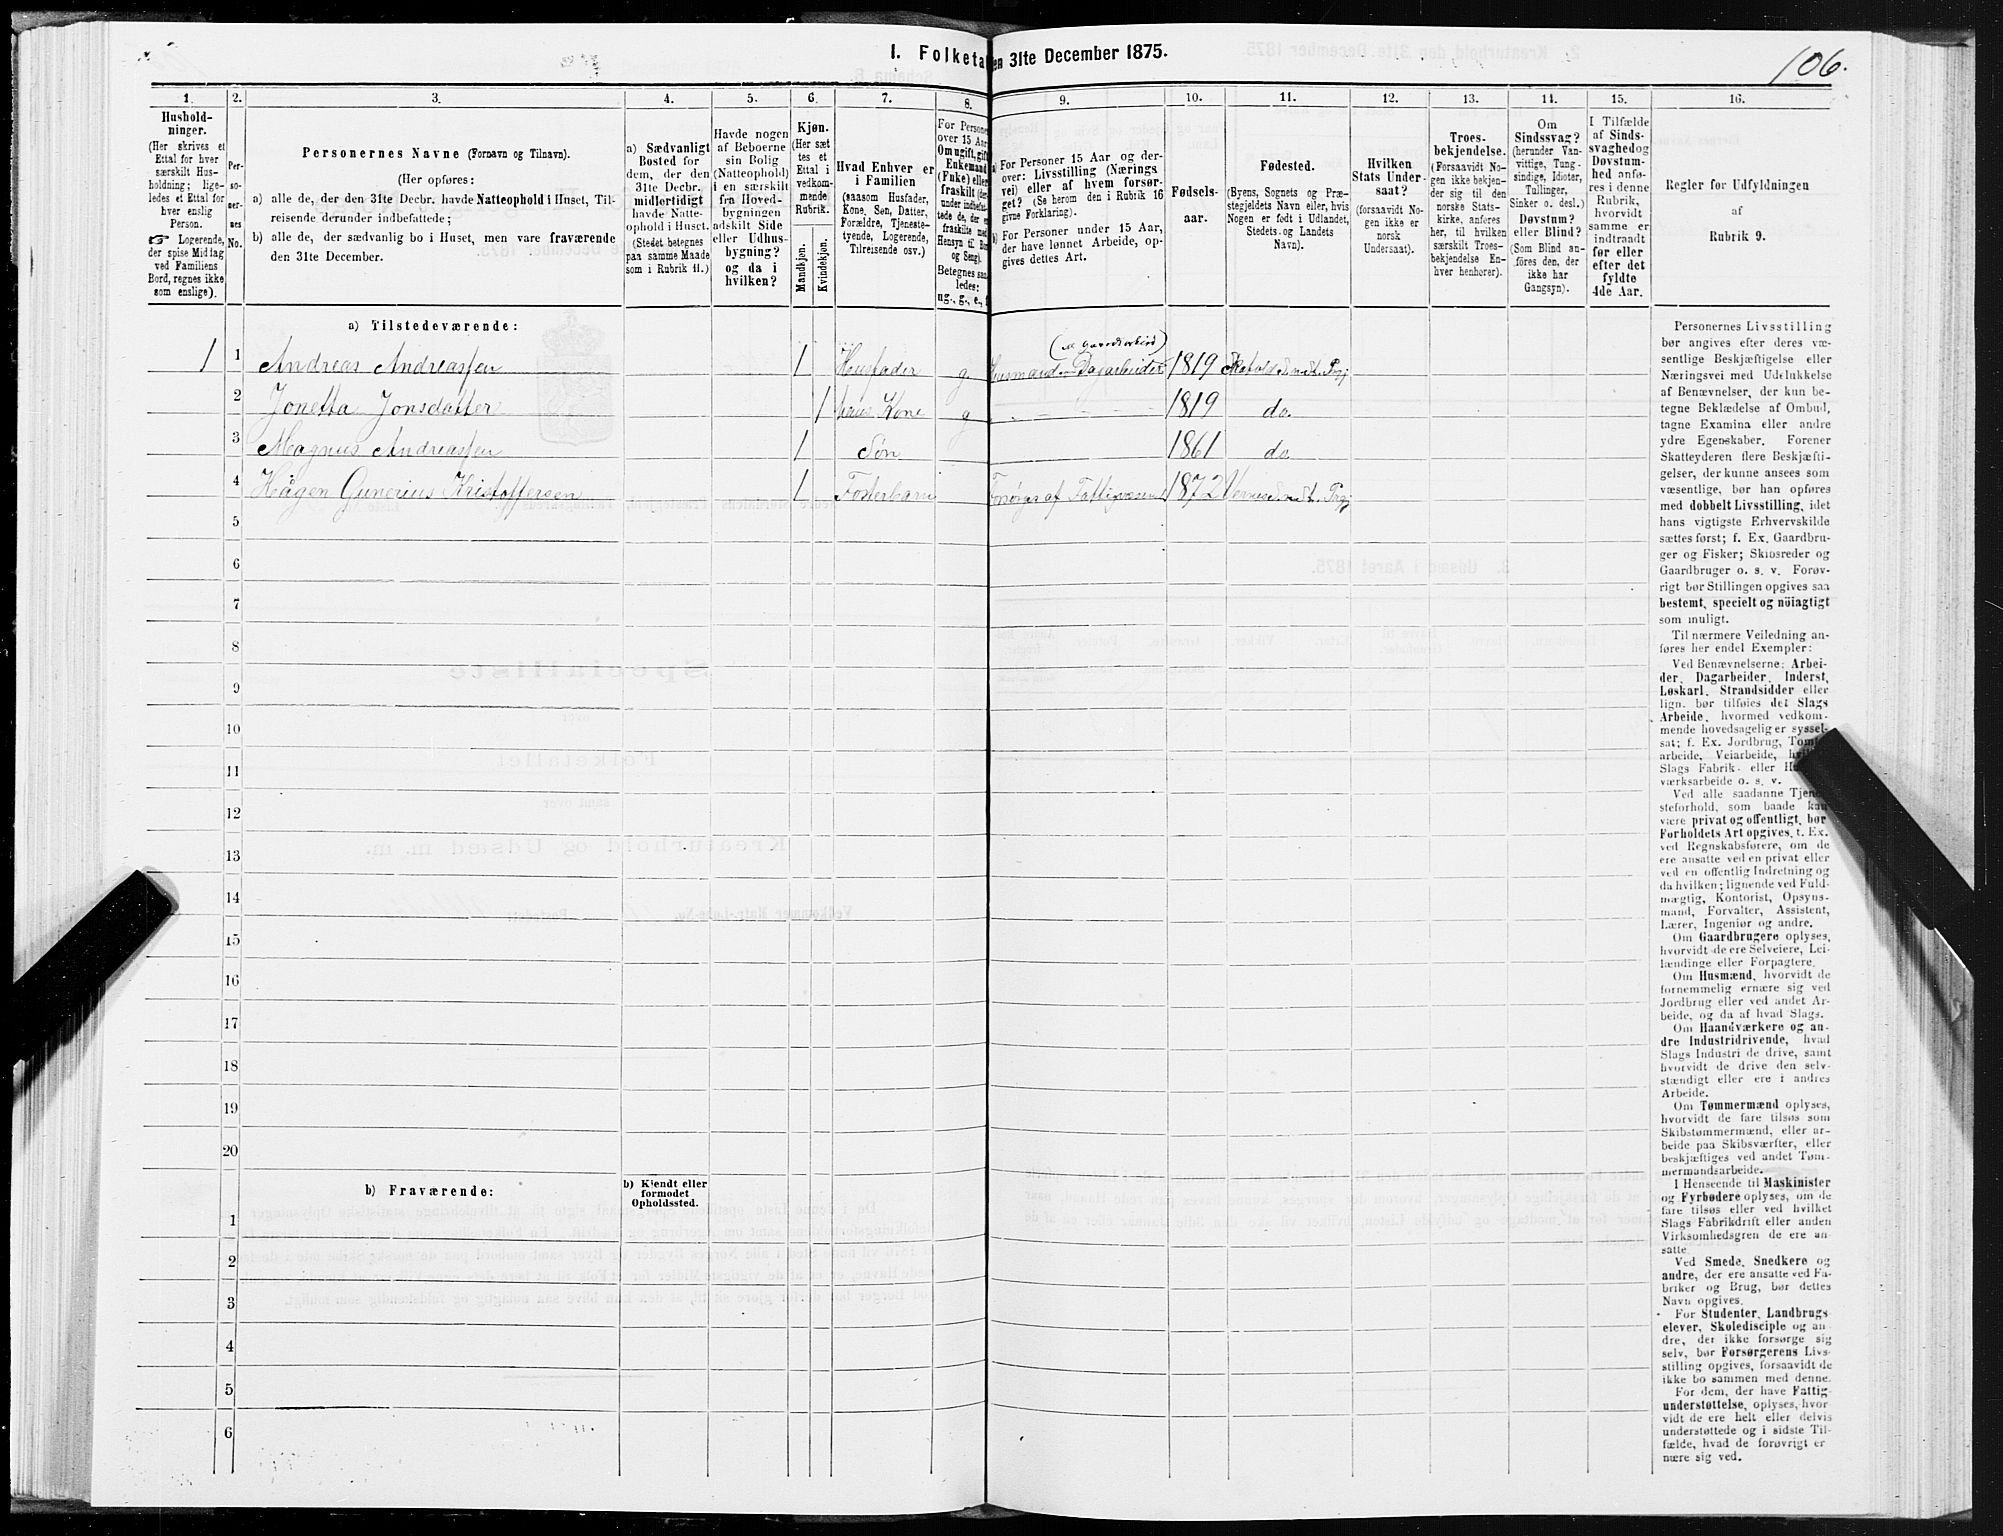 106.
I. Folketa en 31te December 1875.
1. 2. 3. 4. 5. 6. 7. 8. 9. 10. 11. 12. 13. 14. 15. 16.
Hushold-
ninger.
(Her skrives et
Ettal for hver
særskilt Hus-
holdning; lige-
ledes et Ettal for
hver enslig
Person.
☞ Logerende,
der spise Midtag
ved Familiens
Bord, regnes ikke
som enslige).
Per-
so-
ner-
nes
No.
Personernes Navne (Fornavn og Tilnavn).
(Her opføres:
a) alle de, der den 31te Decbr. havde Natteophold i Huset, Til-
reisende derunder indbefattede;
b) alle de, der sædvanlig bo i Huset, men vare fraværende
den 31te December.
a) Sædvanligt
Bosted for
dem, der den
31te Decbr.
midlertidigt
havde Natte-
ophold i Huset.
(Stedet betegnes
paa samme Maade
som i Rubrik 11.)
Havde nogen
af Beboerne
sin Bolig
(Natteophold)
i en særskilt
fra Hoved-
bygningen
adskilt Side
eller Udhus-
bygning?
og da i
hvilken?
Kjøn.
(Her sæt
tes et
Ettal i
vedkom-
mende
Rubrik.
Mandkjøn.
Kvindekjøn.
Hvad Enhver er
i Familien
(saasom Husfader,
Kone, Søn, Datter,
Forældre, Tjeneste-
tyende, Logerende,
Tilreisende osv.)
For Persone
over 15 Aar
Om ugift, gift
Enkemand
(Fuke) eller
fraskilt (der-
under indbefat-
tede de, der e
fraskilte med
Hensyn til Bo
og Seng).
Betegnes saa
ledes:
ug., g., e., f
a) For Personer 15 Aar og der-
over: Livsstilling (Nærings
vei) eller af hvem forsør-
get? (Se herom den i Rubrik 16
givne Forklaring).
b) For Personer under 15 Aar,
der have lønnet Arbeide, op-
gives dettes Art.
Fødsels-
aar.
Fødested.
(Byens, Sognets og Præ-
stegjeldets Navn eller, hvis
Nogen er født i Udlandet,
Stedets og Landets
Navn).
Hvilken
Stats Under-
saat?
(forsaavidt No-
gen ikke er
norsk
Undersaat).
Troes-
bekjendelse.
(Forsaavidt No-
gen ikke bekjen-
der sig til den
norske Stats-
kirke, anføres
her, til hvilken
særskilt Troes-
bekjendelse En-
hver henhører).
Om
Sindssvag?
(herunder Van-
vittige, Tung-
sindige, Idioter,
Tullinger,
Sinker o. desl.)
Døvstum?
eller Blind?
(Som Blind an-
føres den, der
ikke har
Gangsyn).
I Tilfælde
af Sinds-
svaghed og
Døvstum-
hed anfø-
res i denne
Rubrik,
hvorvidt
samme er
indtraadt
før eller
efter det
fyldte
4de Aar.
Regler for Udfyldningen
af
Rubrik 9.
a) Tilstedeværende:
1 1 Andreas Andreassen 1 Husfader g Husmand Dagarbeider 1819
2 Jonetta Jonsdatter 1 hans Kone g 1819 do.
3 Magnus Andreassen 1 Søn 1861 do
4 Hågen Gunerius Kristoffersen 1 Fosterbarn Forsørges af Fattigvæsenet 1872
5
6
7
8
9
10
11
12
13
14
15
16
17
18
19
20
b) Fraværende:
b) Kjendt eller
formodet
Opholdssted.
1
2
3
4
5
6
Personernes Livsstilling
bør angives efter deres væ-
sentlige Beskjæftigelse eller
Næringsvei med Udelukkelse
af Benævnelser, der kun be-
tegne Beklædelse af Ombud,
tagne Examina eller andre
ydre Egenskaber. Forener
Skatteyderen flere Beskjæfti-
gelser, der kunne ansees som
væsentlige, bør han opføres
med dobbelt Livsstilling, idet
hans vigtigste Erhvervskilde
sættes først; f. Ex. Gaardbru-
ger og Fisker; Skibsreder og
Gaardbruger o. s. v. Forøv-
rigt bør Stillingen opgives saa
bestemt, specielt og nöiagtigt
som muligt.
Til nærmere Veiledning an-
føres her endel Exempler:
Ved Benævnelserne: Arbei-
der, Dagarbeider, Inderst,
Løskarl, Strandsidder eller
lign. bør tilføies det Slags
Arbeide, hvormed vedkom-
mende hovedsagelig er syssel-
sat; f. Ex. Jordbrug,
arbeide, Veiarbeide,
Slags Fabrik- eller
værksarbeide o. s. v.
Ved alle saadanne Tjene-
steforhold, som baade kan
være privat og offentligt, bør
Forholdets Art opgives, t. Ex.
ved Regnskabsførere, om de
ere ansatte ved en privat eller
ved en offentlig Indretning og
da hvilken; lignende ved Fuld-
mægtig, Kontorist, Opsyns-
mand, Forvalter, Assistent,
Lærer, Ingeniør og andre.
Om Gaardbrugere oplyses,
hvorvidt de ere Selveiere, Lei-
lændinge eller Forpagtere.
Om Husmænd, hvorvidt de
fornemmelig ernære sig ved
Jordbrug eller ved andet Ar-
beide, og da af hvad Slags.
Om Haandværkere og an-
dre Industridrivende, hvad
Slags Industri de drive, samt
hvorvidt de drive den selv-
stændigt eller ere i andres
Arbeide.
Om Tømmermænd oplyses,
hvorvidt de fare tilsøs som
Skibstømmermænd, eller ar-
beide paa Skibsværfter, eller
beskjæftiges ved andet Tøm-
mermandsarbeide.
I Henseende til Maskinister
og Fyrbødere oplyses, om de
fare tilsøs eller ved hvilket
Slags Fabrikdrift eller anden
Virksomhedsgren de ere an-
satte.
Ved Smede, Snedkere og
andre, der ere ansatte ved Fa-
briker og Brug, bør dettes
Navn opgives.
For Studenter, Landbrugs-
elever, Skoledisciple og an-
dre, der ikke forsørge sig
selv, bør Forsørgerens Livs-
stilling opgives, forsaavidt de
ikke bo sammen med denne.
For dem, der have Fattig-
understøttelse, oplyses, hvor-
vidt de ere helt eller delvis
understøttede og i sidste Til-
fælde, hvad de forøvrigt er
nære sig ved.